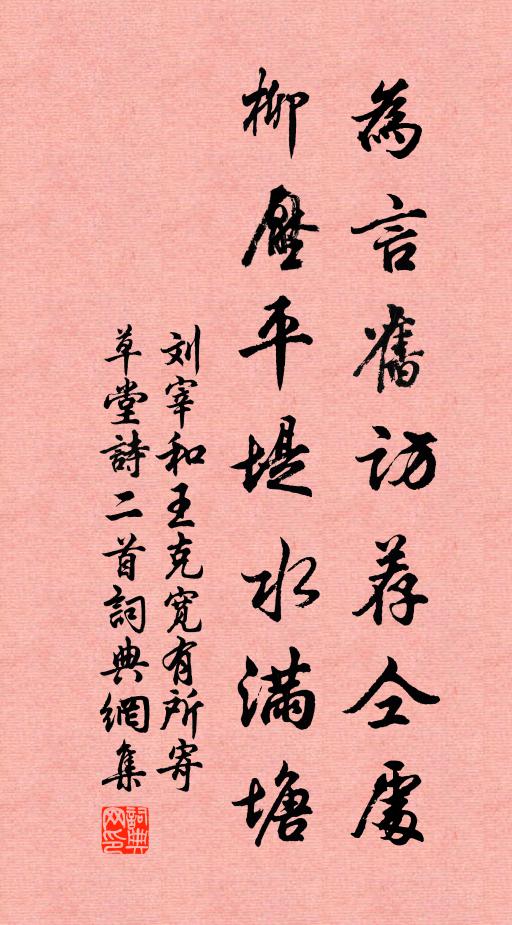 為言舊訪荐仝處
柳壓平堤水满塘
刘宰和王克宽有所寄
草堂詩二首詞典網集
詞典网印